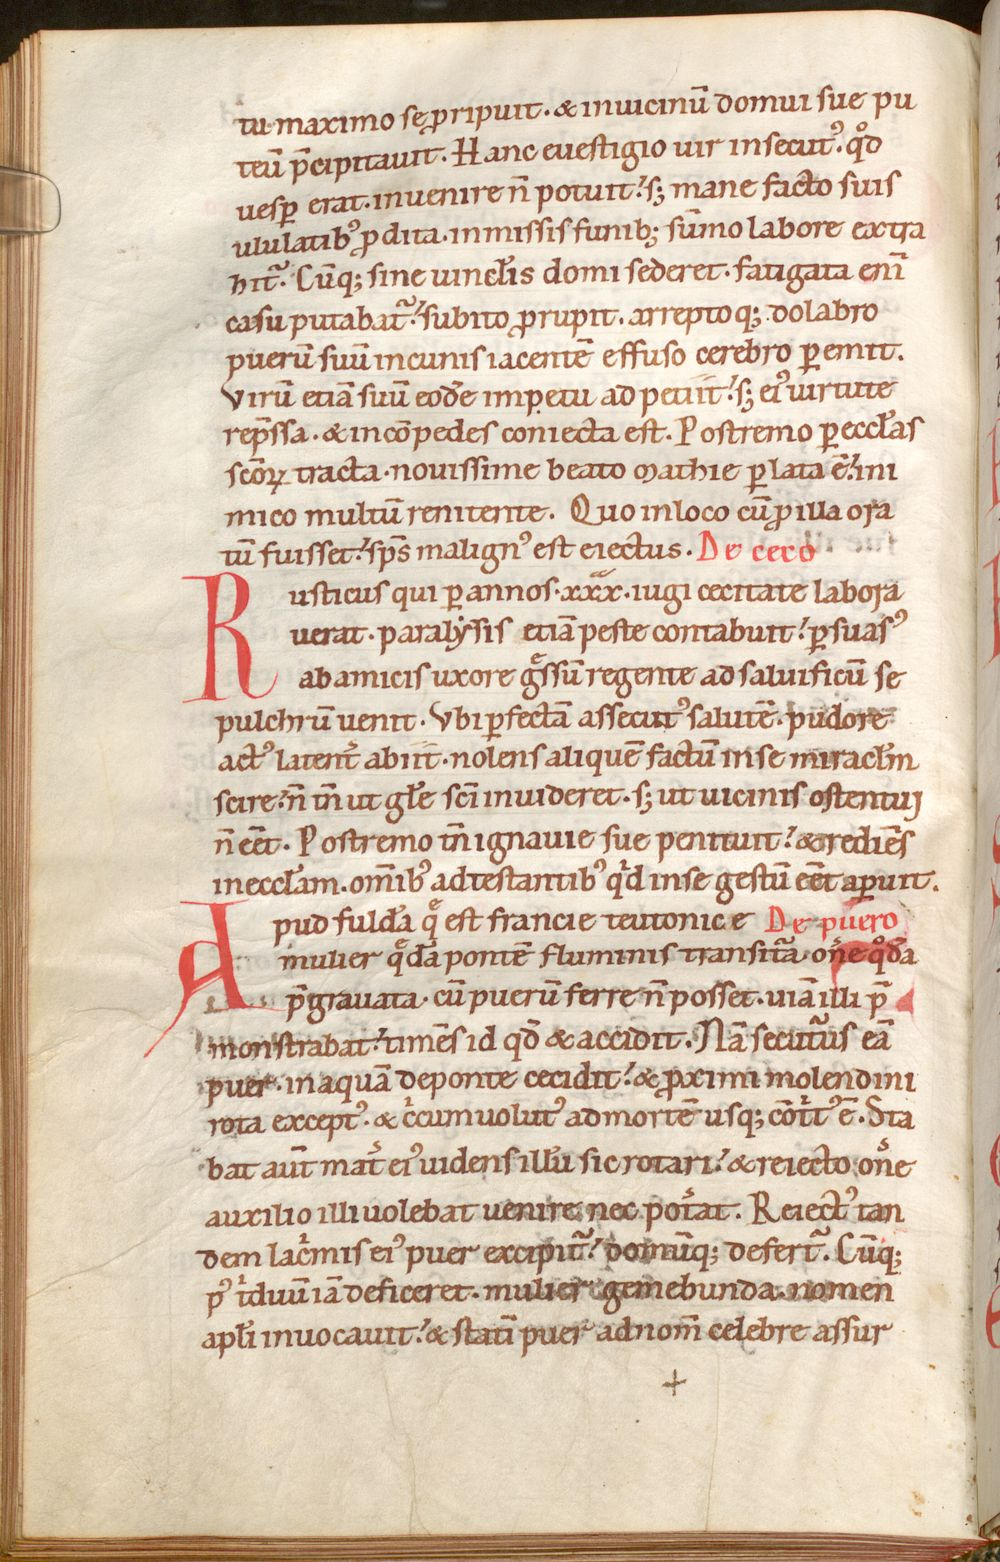 tu maximo se ꝓripuit · & inuicinū domui sue pu
teū p̄cipitauit. Hanc euestigio uir insecut᾿. qd̊
uesꝑ erat. inuenire n̄ potuit? s; mane facto suis
ululatib᾿ ꝓdita. inmissis funib; sūmo labore extra
hit᷑. Cūq; sine uinclis domi sederet. fatigata eni̅
casu putabat᷑? subito ꝓrupit. arrepto q; dolabro
puerū suū incunis iacentē effuso cerebro ꝑemit.
Virū etiā suū eodē impetu ad petiit? s; ei᾿ uirtute
rep̄ssa. & incōpedes coniecta est. Postremo ꝑ eccl̄as
scōꝝ tracta. nouissime beato mathie ꝑlata ē? ini
mico multū renitente. Quo inloco cū ꝓ illa ora
tū fuisset? sp̄s malign᾿ est eiectus. De ceco
Rusticus qui ꝑ annos · xxx · iugi cecitate labora
uerat. paralẏsis etiā peste contabuit? ꝑsuas᾿
ab amicis uxore gͤssū regente ad saluificū se
pulchrū uenit. Vbi ꝑfectā assecut᾿ salutē. pudore
act᾿ latent᷑ abiit. nolens aliquē factū inse miracl̄m
scire? n̄ tn̄ ut gl̄e sc̄i inuideret. s; ut uicinis ostentui
n̄ eēt. Postremo tn̄ ignauie sue penituit? & rediēs
in eccl̄am. om̄ib᾿ adtestantib᾿ qͥd inse gestū eēt aperuit.
Apud fulda qͤ est francie teutonice De puero
mulier qͤdā pontē fluminis transit᷑a on̄e qͦda
p̄grauata. cū puerū ferre n̄ posset. uiā illi p̄
monstrabat? timēs id qd̄ & accidit. Nā secut᷑us eā
puer. in aquā deponte cecidit? & ꝓximi molendini
rota except᾿. & cͥcumuolut᾿ ad mortē usq; cōtͥt᾿ ē. Sta
bat aūt mat᷑ ei᾿ uidens illū sic rotari? & reiecto on̄e
auxilio illi uolebat uenire nec pot᷑at. Reiect᾿ tan
dem lacͥmis ei᾿ puer excipit᷑? domūq; defert᷑. Cūq;
p᾿ tͥduū iā deficeret. mulier gemebunda. nomen
apl̄i inuocauit? & stati̅ puer ad nom̄ celebre assur
+